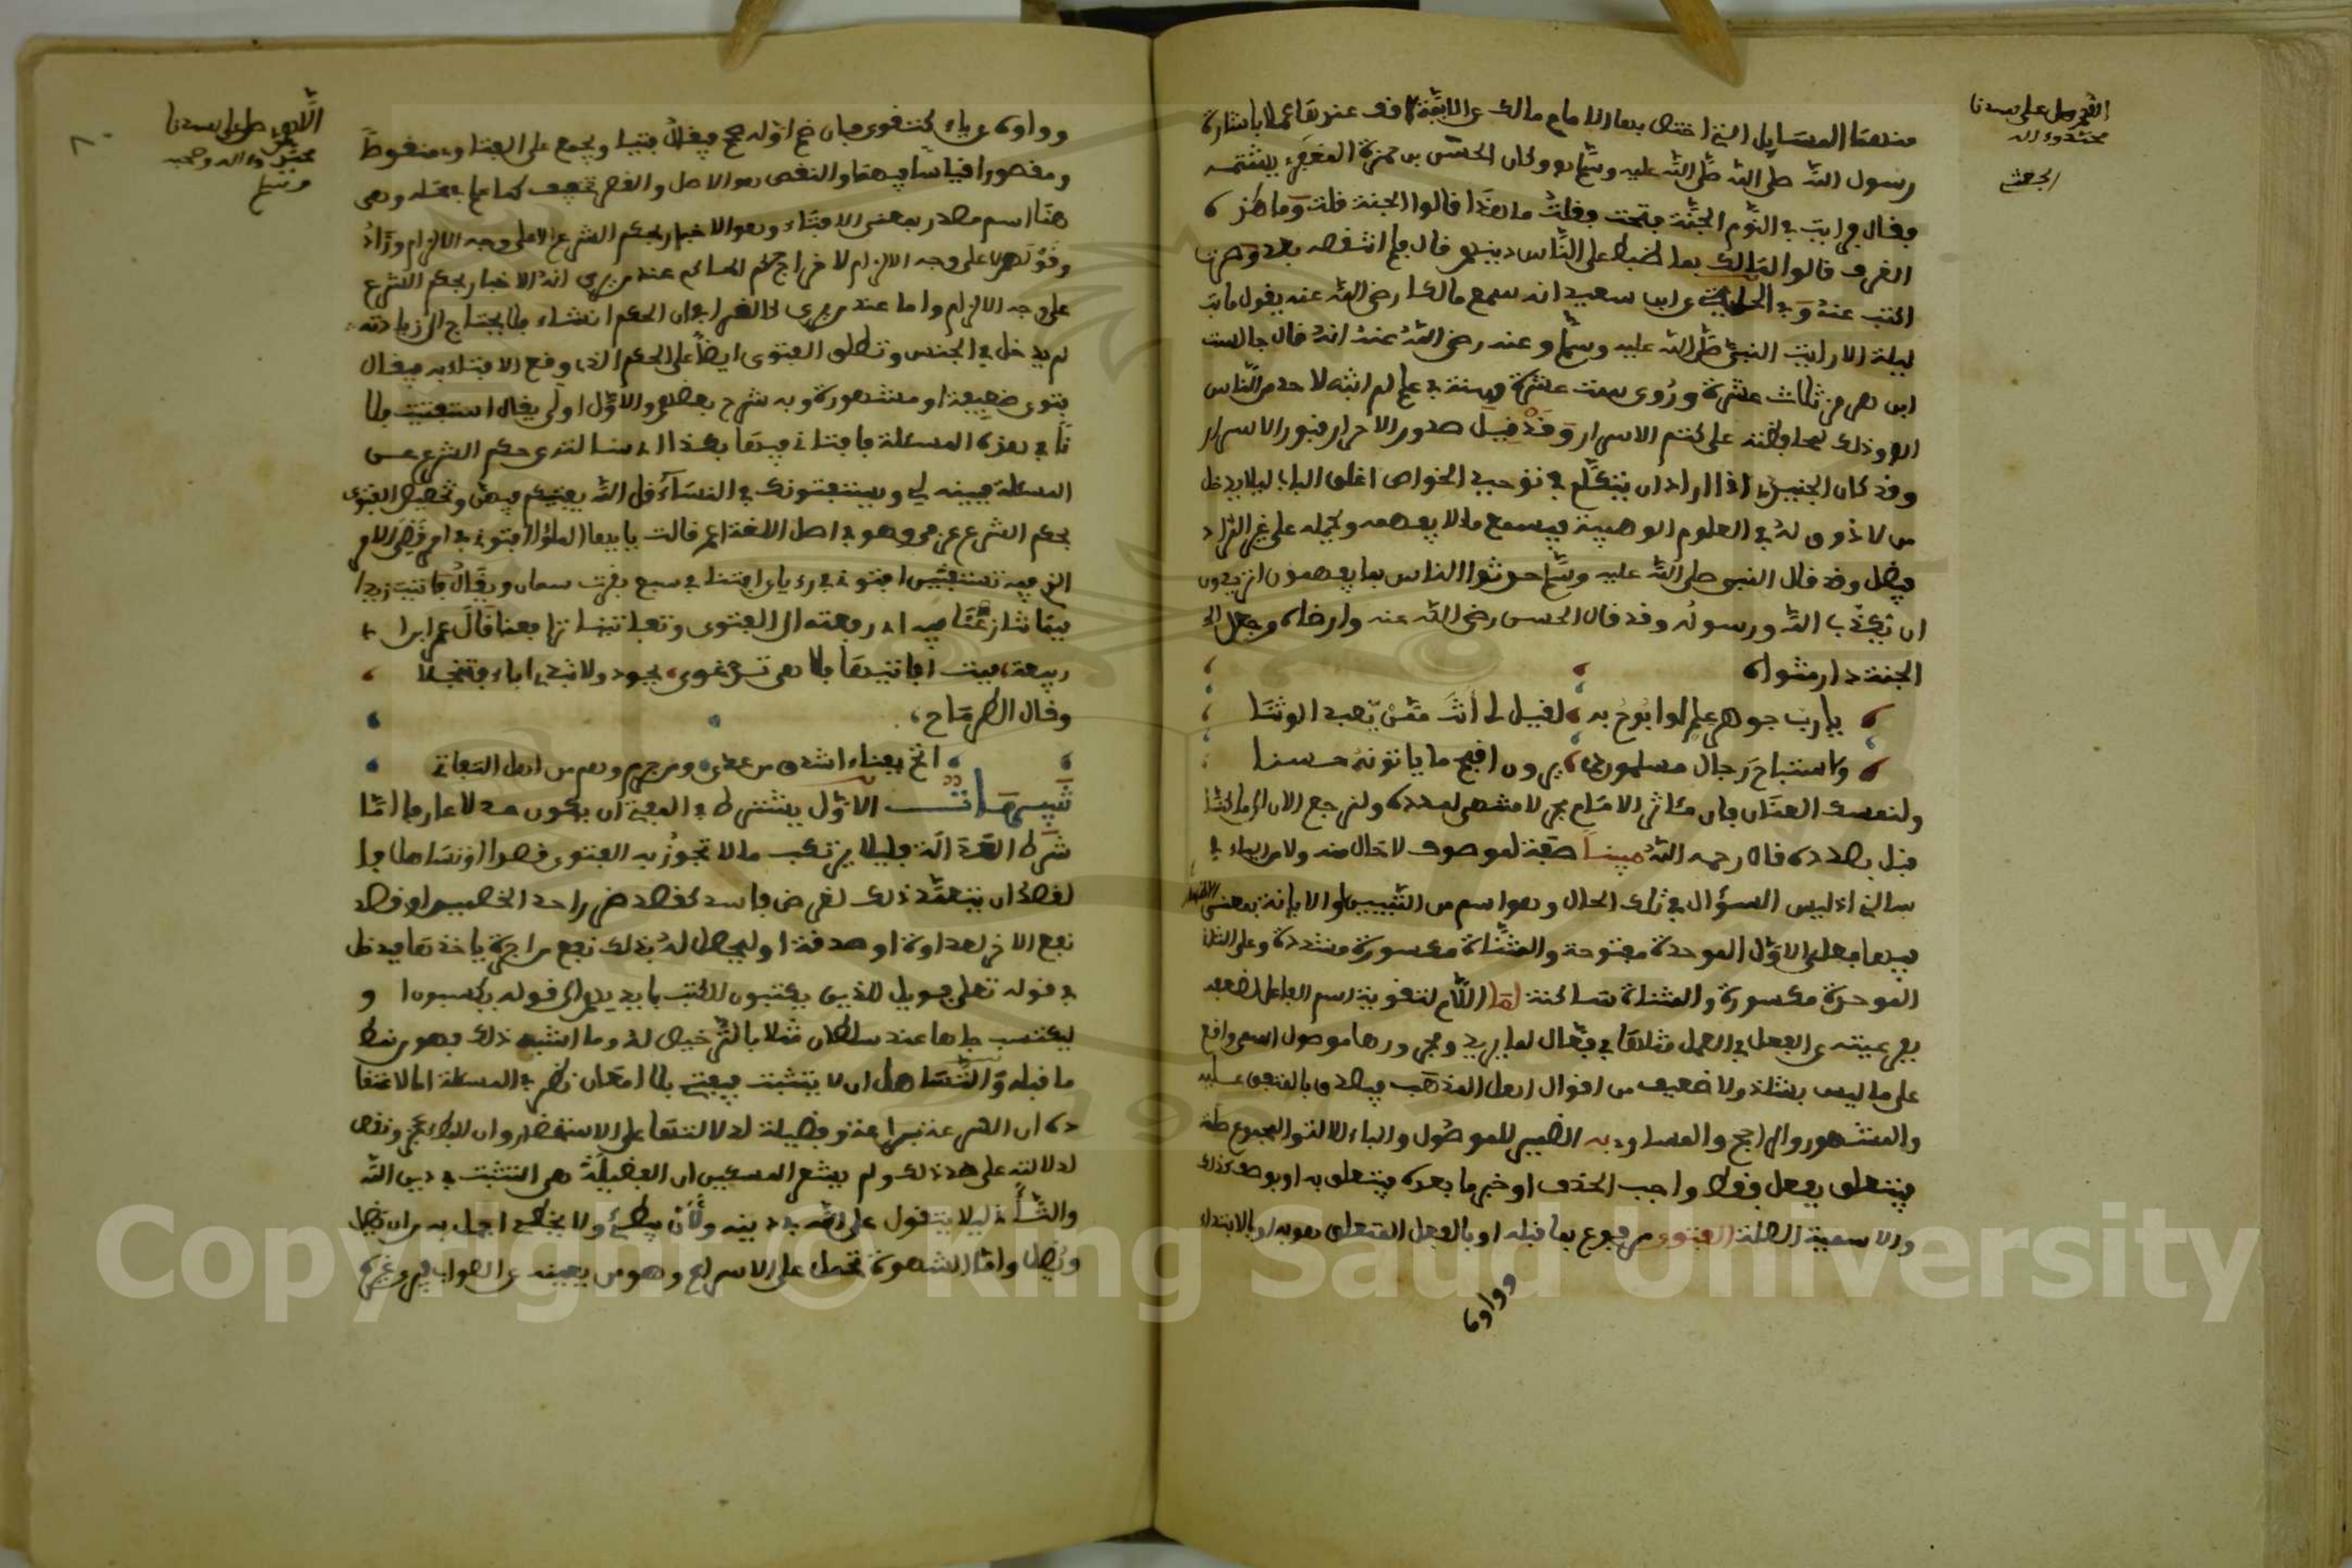 اللهم صل على سيدنا
محمد وءاله
منها المسايل التي اختص بها الامام مالك
رسول الله صلى الله عليه وسلم وكان الحسن بن حمزة يشتمه
فقال رايت في النوم الجنة فتحت فقلت ما هذا قالوا الجنة قلت وما هذه
الغرف قالوا لمالك بما ضبط على الناس دينهم قال فلم انتقصه بعد وصرت
اكتب عنه وفي الحلية عن ابن سعيد انه سمع مالكا رضي الله عنه يقول ما بت
ليلة الا رايت النبي صلى الله عليه وسلم وعنه رضي الله عنه انه قال جالست
ابن هرمز ثلاث عشرة وروى ست عشرة سنة في علم لم ابثه لاحد من الناس
وذلك محافظة على كتم الاسرار وقد قيل صدور الاحرار قبور الاسرار
وقد كان الجنيد اذا اراد ان يتكلم في توحيد الخواص اغلق الباب ليلا يدخل
من لا ذوق له في العلوم الوهبية فيسمع ما لا يفهمه ويحمله على غير المراد
فيضل وقد قال النبي صلى الله عليه وسلم حدثوا الناس بما يفهمون اتريدون
ان يكذب الله ورسوله وقد قال الحسن رضي الله عنه وارضاه وجعل
الجنة دار مثواه
يا رب جوهر علم لو ابوح به لقيل لي انت ممن يعبد الوثنا
ولاستباح رجال مسلمون دمي يرون اقبح ما ياتونه حسنا
ولنمسك العنان فان مئاثر الامام بحر لا منتهى لمدده ولنرجع الان الى ما كنا
قبل بصدده قال رحمه الله مبينا صفة لموصوف لا حال منه ولا من الياء في
سالني اذ ليس السؤال في تلك الحال وهو اسم من التبيين او الابانة بمعنى الاظهار
فيهما فعلى الاول الموحدة مفتوحة والمثناة مكسورة مشددة وعلى الثاني
الموحدة مكسورة والمثناة ساكنة لما اللام لتقوية اسم الفاعل لضعفه
بفرعيته عن الفعل في العمل مثلها في فعال لما يريد ومجرورها موصول اسمي واقع
على ما ليس بشاذ ولا ضعيف من اقوال اهل المذهب فيصدق بالمتفق عليه
والمشهور والراجح والمساوي به الضمير للموصول والباء للالة والمجموع صلة
فيتعلق بفعل فقط واجب الحذف او خبر ما بعده فيتعلق به او بوصف كذلك
والاسمية الصلة الفتوى مرفوع بما قبله او بالفعل المتعلق هو به او بالابتداء
وواوه
اللهم صل على سيدنا
محمد وءاله وصحبه
وسلم
٨٠
وواوه عن ياء كتقوى فان ضم اوله صحح فيقال فتيا ويجمع على الفتاوى منقوصا
ومقصورا قياسا فيهما والنقص هو الاصل والقصر تخفيف كما علم في محله وهي
هنا اسم مصدر بمعنى الافتاء وهو الاخبار بحكم الشرع لا على وجه الالزام وزاد
وقولهم لا على وجه الالزام لاخراج حكم الحاكم عند من يرى انه الاخبار بحكم الشرع
على وجه الالزام واما عند من يرى كالقرافي ان الحكم انشاء فلا يحتاج الى زيادته
لم يدخل في الجنس وتطلق الفتوى ايضا على الحكم الذي وقع الافتاء به فيقال
فتوى ضعيفة او مشهورة وبه شرح بعضهم والاول اولى يقال استفتيت فلا
نا في هذه المسئلة فافتاني فيها بكذا اي سالته عن حكم الشرع عن
المسئلة فبينه لي ويستفتونك في النساء قل الله يفتيكم فيهن وتخصيص الفتوى
بحكم الشرع عرفي وهو في اصل اللغة اعم قالت يايها الملؤا افتوني في امري قضي الامر
الذي فيه تستفتيين افتوني في رءياي افتنا في سبع بقرت سمان ويقال فاتيت زيدا
فيما تنازعنا فيه اي رجعته الى الفتوى وتعاتبنا قال عمر ابن ابي
ربيعة فبت افاتيها فلا هي ترعوي بجود ولا تبدي اباء فتبخلا
وقال الطرماح
انخ بفناء اشدق من عدي ومن جرم وهم من اهل التفاتي
تنبيهات الاول يشترط في المفتي ان يكون عدلا عارفا اما
شرط العدالة فليلا يرتكب ما لا تجوز به الفتوى قصدا او تساهلا فا
لقصد ان يتعمد ذلك لغرض فاسد كقصد ضر احد الخصمين او قصد
نفع الاخر لعداوة او صداقة او ليحصل له بذلك نفع من اجرة ياخذها فيدخل
في قوله تعلى فويل للذين يكتبون الكتب بايديهم الى قوله يكسبون او
ليكتسب جاها عند سلطان مثلا بالترخيص له وما اشبه ذلك فهو من نمط
ما قبله والتساهل ان لا يتثبت فيفتي بلا امعان نظر في المسئلة اما لاعتقا
ده ان السرعة براعة وفضيلة لدلالتها على الاستحضار وان الابطاء عجز ونقص
لدلالته على ضد ذلك ولم يشعر المسكين ان الفضيلة هي التثبت في دين الله
والتاني ليلا يتقول على الله في دينه ولان يبطئ ولا يخطئ اجمل به من ان يضل
ويضل واما لشهوة تحمله على الاسراع وهو من يعميه عن الصواب فيروغ